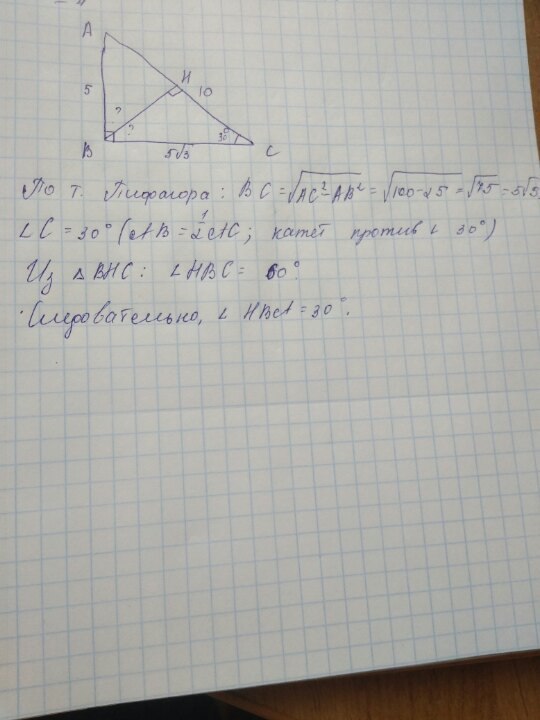 A
H
5
10
?
?
30°
B
5√3
C
По т. Пифагора: BC = √AC²-AB² = √100-25 = √75 = 5√3
∠C = 30° (AB = 1/2 AC; катет против ∠ 30°)
Из △BHC: ∠HBC = 60°.
Следовательно, ∠HBA = 30°.